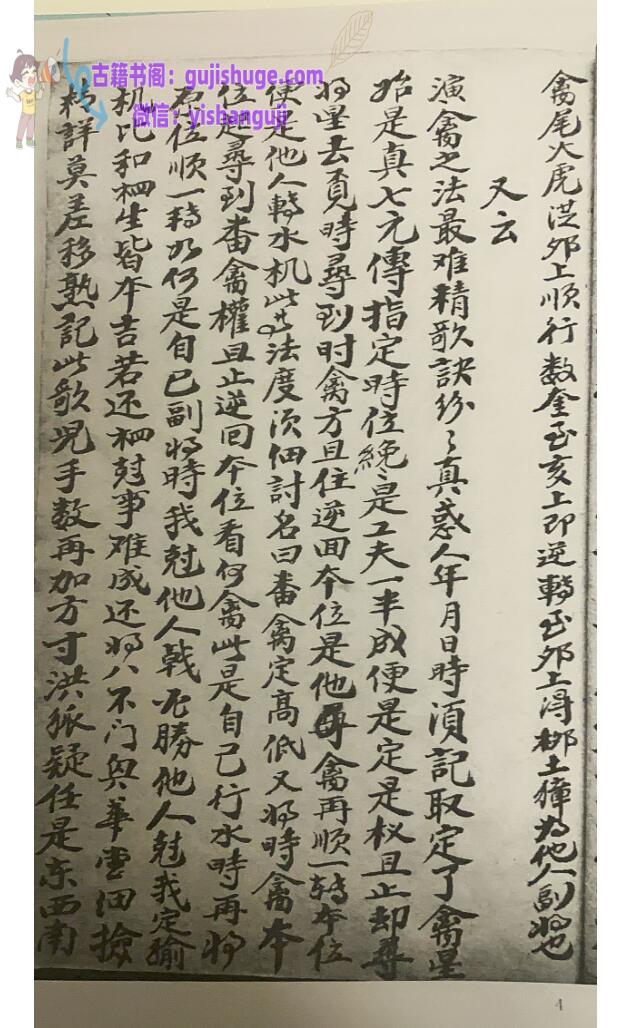 古籍书阁：gujishuge.com
微信：yishanguji
禽尾火虎洪卯上順行数奎至亥上即逆轉至卯上得柳土獐為他人副将也
又云
演禽之法最难精歌訣紛〻真惑人年月日時須記取定了禽星
始是真七元傳指定時位纔是工夫一半成便是定是权且止却尋
将星去覓時尋到时禽方且住逆回本位是他禽再順一轉本位
便是他人轉水机此法度須細討名曰番禽定高低又将時禽本
位起尋到番禽權且止逆回本位看何禽此是自己行水時再将
原位順一轉如何是自己副将時我尅他人戦必勝他人尅我定输
机比和相生皆本吉若还相尅事难成还将八不门與華盖细撿
精詳莫差移熟記此歌児手数再加方寸洪狐疑任是东西南
4